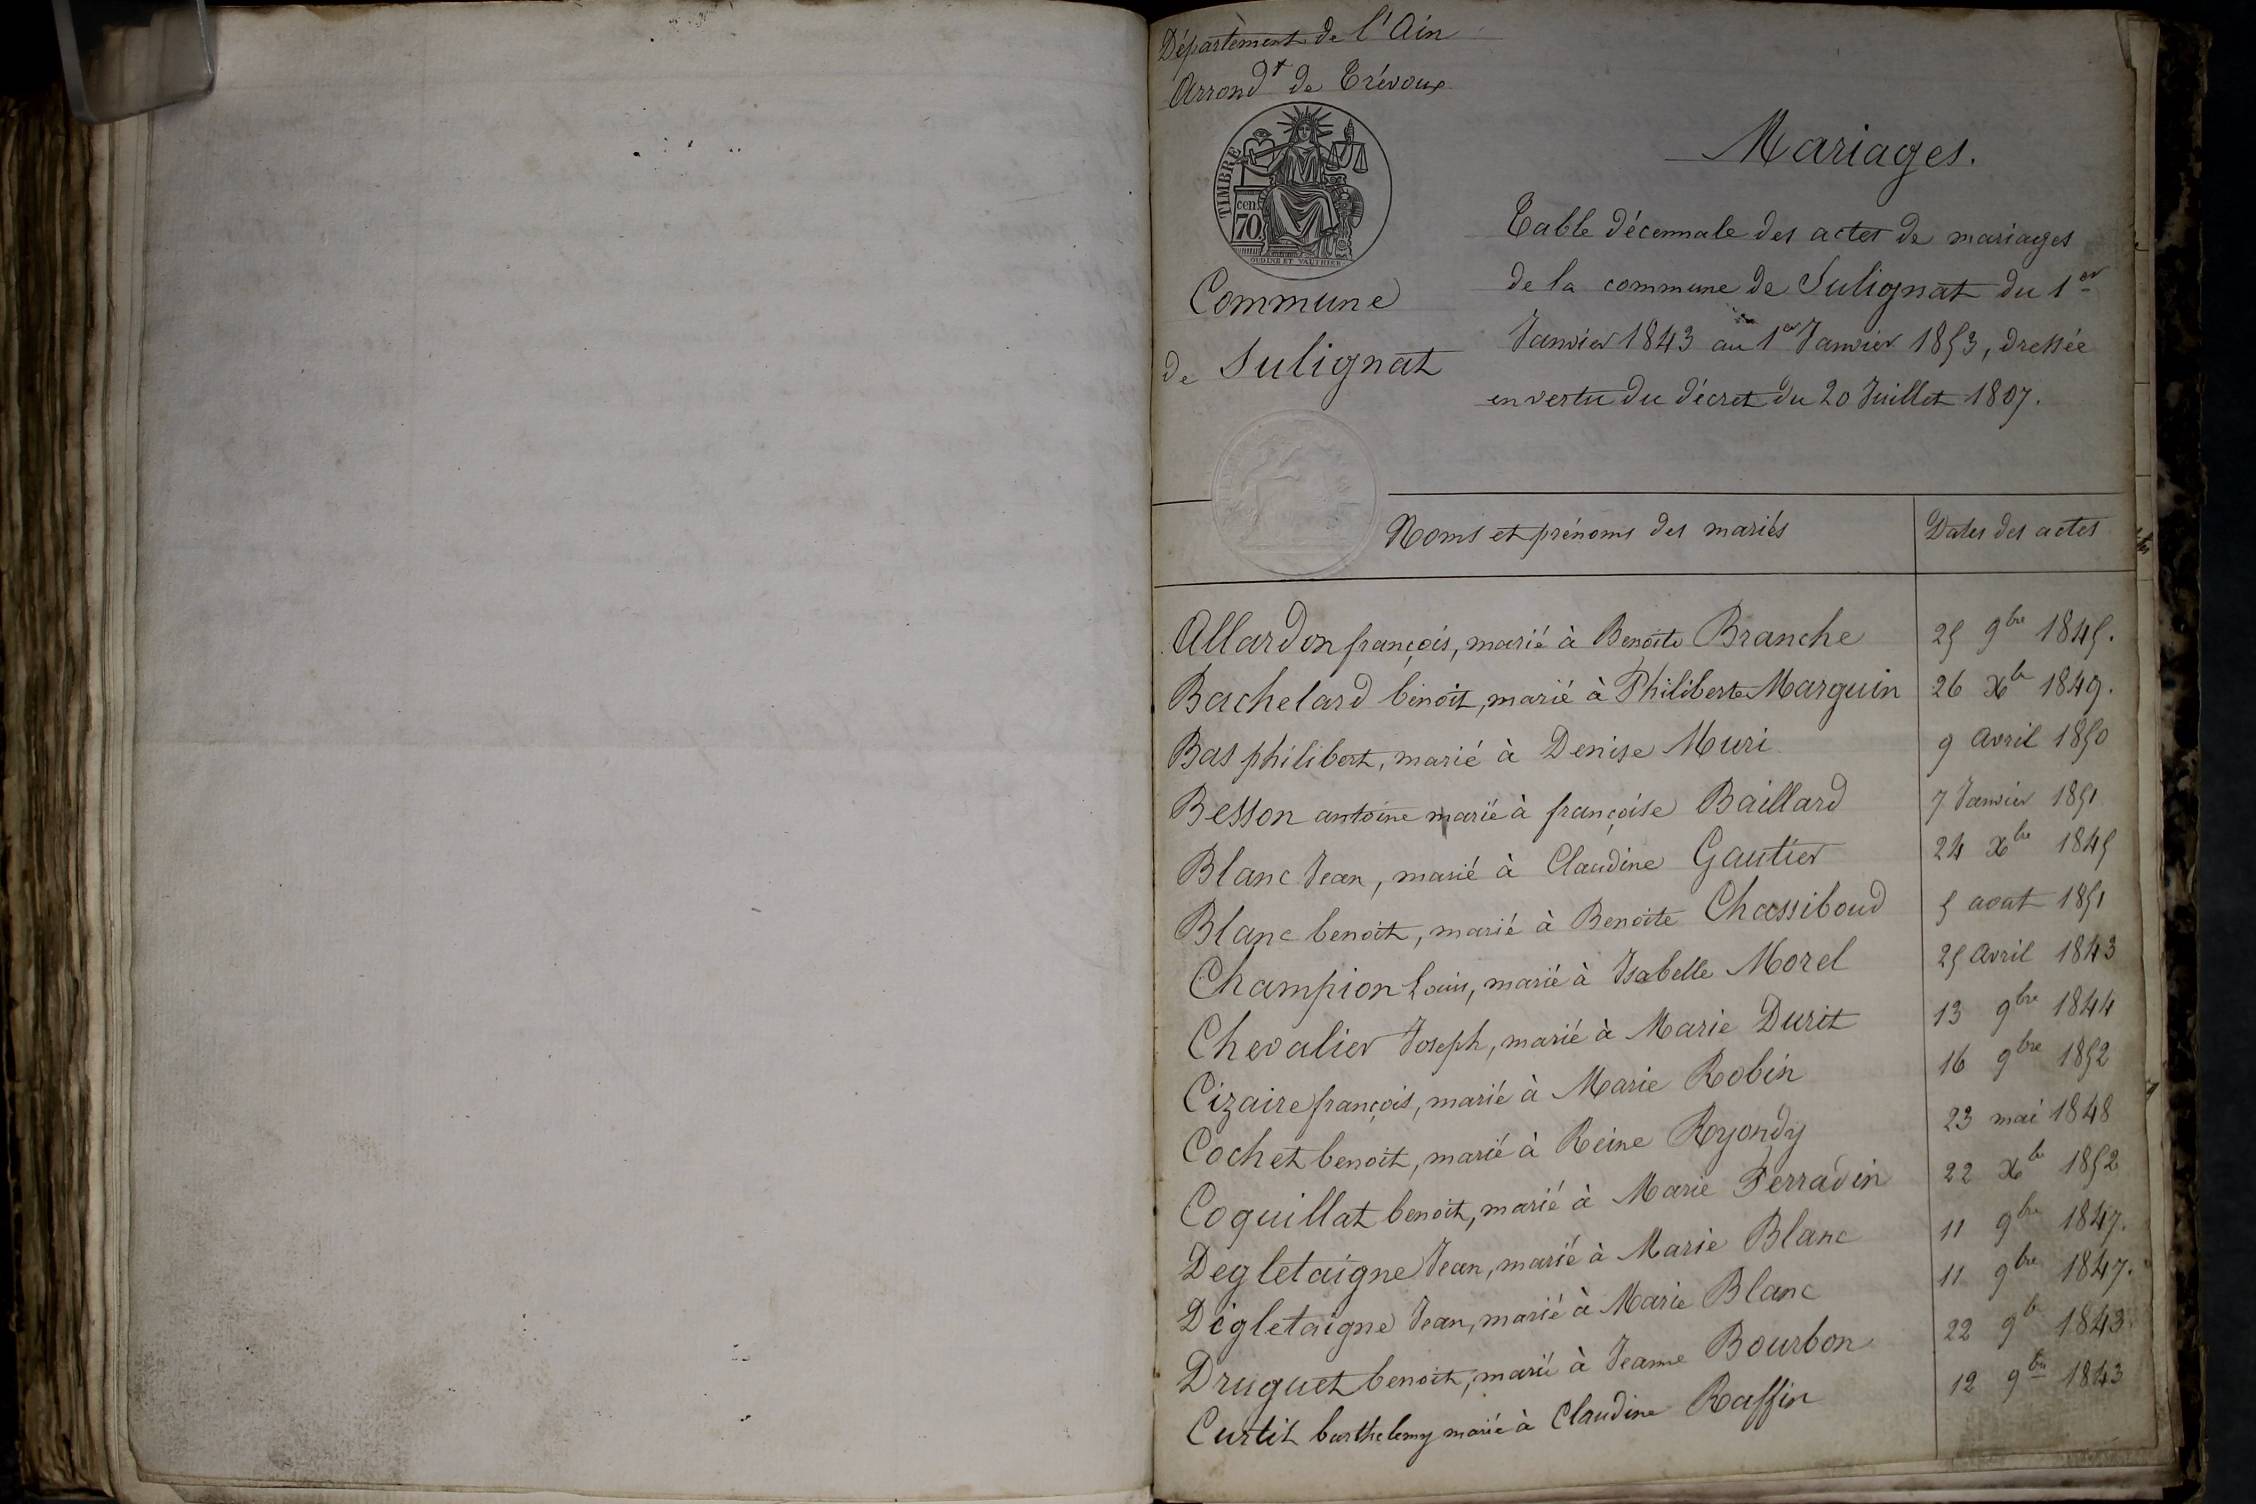 Département de l'Ain
Arrond^t de Trévoux
TIMBRE
cen.
70
OUDINE ET VAUTHIER
Commune
de Sulignat
Mariages.
Table décennale des actes de mariages
de la commune de Sulignat du 1er
Janvier 1843 au 1er Janvier 1853, dressée
en vertu du décret du 20 Juillet 1807.
Noms et prénoms des mariés Dates des actes
Allardon françois, marié à Benoite Branche 25 9bre 1845.
Bachelard benoit, marié à Philiberte Marguin 26 Xbre 1849.
Bas philibert, marié à Denise Muri 9 Avril 1850
Besson antoine marié à françoise Baillard 7 Janvier 1851
Blanc Jean, marié à Claudine Gautier 24 Xbre 1845
Blanc benoit, marié à Benoite Chassiboud 5 aout 1851
Champion Louis, marié à Isabelle Morel 25 Avril 1843
Chevalier Joseph, marié à Marie Durit 13 9bre 1844
Cizaire françois, marié à Marie Robin 16 9bre 1852
Cochet benoit, marié à Reine Ryondy 23 mai 1848
Coquillat benoit, marié à Marie Ferradin 22 Xbre 1852
Degletaigne Jean, marié à Marie Blanc 11 9bre 1847.
Dégletaigne Jean, marié à Marie Blanc 11 9bre 1847.
Druguet benoit, marié à Jeanne Bourbon 22 9bre 1843
Curtit barthelemy marié à Claudine Raffin 12 9bre 1843